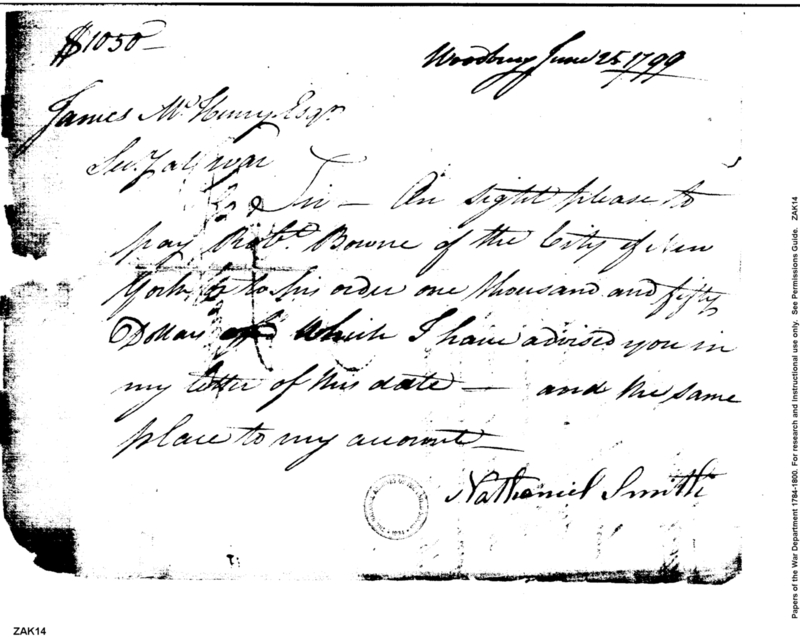 $1050—
Woodbury June 25 1799
James McHenry Esqr
Sec. of War
Sir — On sight please to
pay Robt. Bowne of the City of New
York, or to his order one thousand and fifty
Dollars of which I have advised you in
my letter of this date — and the same
place to my account—
Nathaniel Smith
ZAK14
Papers of the War Department 1784-1800. For research and Instructional use only. See Permissions Guide. ZAK14